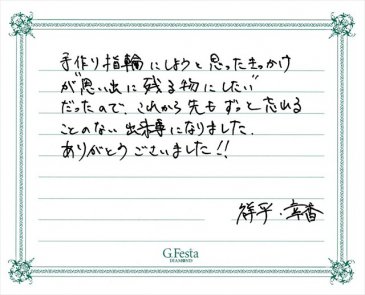 手作り指輪にしようと思ったきっかけ
が"思い出に残る物にしたい"
だったので、これから先もずっと忘れる
ことのない出来事になりました.
ありがとうございました!!
祥平・幸香
G.Festa
DIAMOND